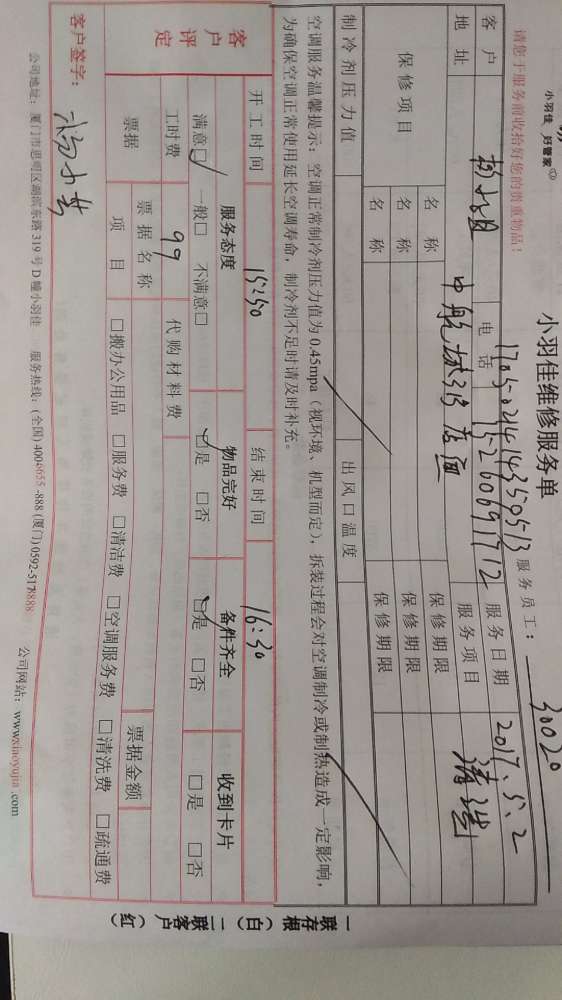 小羽佳 好管家
小羽佳维修服务单
请您于服务前收拾好您的贵重物品!
17050214143509513
服务员工: 30020
客户 电话 15260691712 服务日期 2017.5.2
地址 中航城313店面 服务项目 清洗
保修项目 名称 保修期限
名称 保修期限
名称 保修期限
制冷剂压力值 出风口温度
空调服务温馨提示:空调正常制冷剂压力值为0.45mpa(视环境、机型而定),拆装过程会对空调制冷或制热造成一定影响,
为确保空调正常使用延长空调寿命,制冷剂不足时请及时补充。
开工时间 15:50 结束时间 16:30
客户评定 服务态度 物品完好 备件齐全 收到卡片
满意☑ 一般☐ 不满意☐ ☑是 ☐否 ☑是 ☐否 ☐是 ☐否
工时费 99 代购材料费
票据 票据名称 票据金额
项目 ☐搬办公用品 ☐服务费 ☐清洁费 ☐空调服务费 ☐清洗费 ☐疏通费
客户签字:
公司地址:厦门市思明区湖滨东路319号D幢小羽佳 服务热线:(全国)4004655-888(厦门)0592-5178888 公司网站:www.xiaoyujia.com
一联存根(白)二联客户(红)